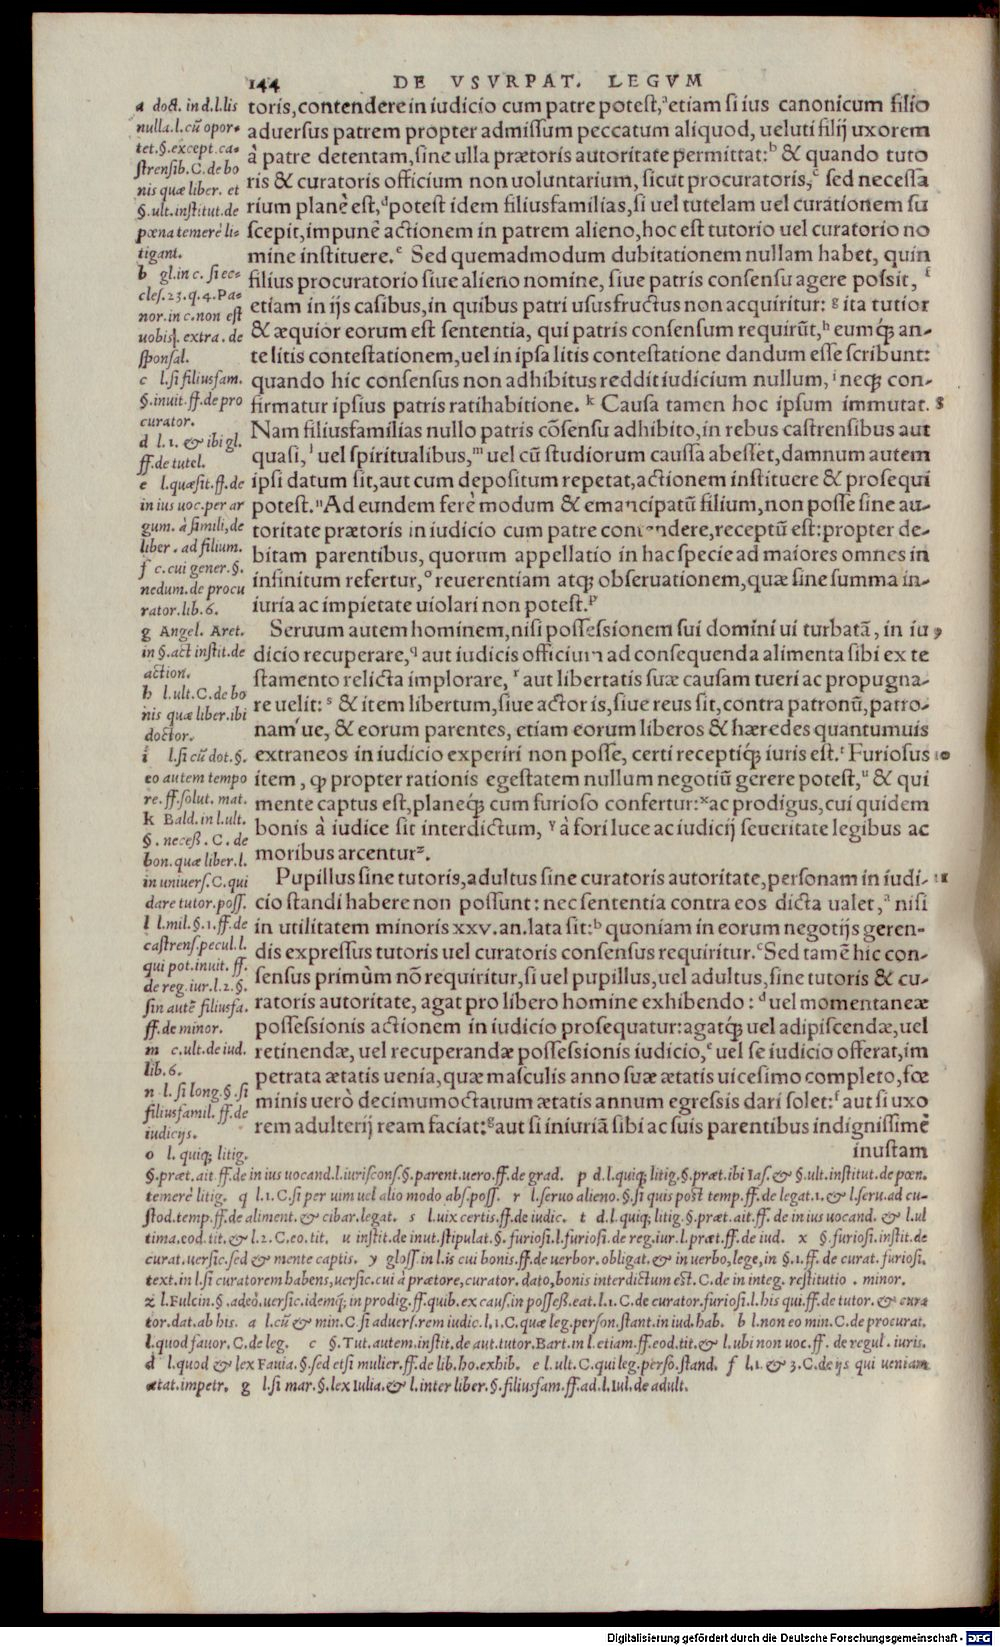 144 DE VSVRPAT. LEGVM
toris, contendere in iudicio cum patre potest,ᵃ etiam si ius canonicum filio
aduersus patrem propter admissum peccatum aliquod, ueluti filij uxorem
à patre detentam, sine ulla prætoris autoritate permittat:ᵇ & quando tuto
ris & curatoris officium non uoluntarium, sicut procuratoris,ᶜ sed necessa
rium planè est,ᵈ potest idem filiusfamilias, si uel tutelam uel curationem su
scepit, impunè actionem in patrem alieno, hoc est tutorio uel curatorio no
mine instituere.ᵉ Sed quemadmodum dubitationem nullam habet, quin
filius procuratorio siue alieno nomine, siue patris consensu agere possit,ᶠ
etiam in ijs casibus, in quibus patri ususfructus non acquiritur:ᵍ ita tutior
& æquior eorum est sententia, qui patris consensum requirũt,ʰ eumq́; an-
te litis contestationem, uel in ipsa litis contestatione dandum esse scribunt:
quando hic consensus non adhibitus reddit iudicium nullum,ⁱ neq; con-
firmatur ipsius patris ratihabitione.ᵏ Causa tamen hoc ipsum immutat. 8
Nam filiusfamilias nullo patris cõsensu adhibito, in rebus castrensibus aut
quasi,ˡ uel spiritualibus,ᵐ uel cũ studiorum caussa abesset, damnum autem
ipsi datum sit, aut cum depositum repetat, actionem instituere & prosequi
potest.ⁿ Ad eundem ferè modum & emancipatũ filium, non posse sine au-
toritate prætoris in iudicio cum patre con ndere, receptũ est: propter de-
bitam parentibus, quorum appellatio in hac specie ad maiores omnes in
infinitum refertur,ᵒ reuerentiam atq; obseruationem, quæ sine summa in-
iuria ac impietate uiolari non potest.ᵖ
Seruum autem hominem, nisi possessionem sui domini ui turbatã, in iu 9
dicio recuperare,q aut iudicis officium ad consequenda alimenta sibi ex te
stamento relicta implorare,ʳ aut libertatis suæ causam tueri ac propugna-
re uelit:ˢ & item libertum, siue actor is, siue reus sit, contra patronũ, patro-
naḿue, & eorum parentes, etiam eorum liberos & hæredes quantumuis
extraneos in iudicio experiri non posse, certi receptiq́; iuris est.ᵗ Furiosus 10
item, qp propter rationis egestatem nullum negotiũ gerere potest,ᵘ & qui
mente captus est, planeq́; cum furioso confertur:ˣ ac prodigus, cui quidem
bonis à iudice sit interdictum,ʸ à fori luce ac iudicij seueritate legibus ac
moribus arcenturᶻ.
Pupillus sine tutoris, adultus sine curatoris autoritate, personam in iudi- 11
cio standi habere non possunt: nec sententia contra eos dicta ualet,ᵃ nisi
in utilitatem minoris xxv. an. lata sit:ᵇ quoniam in eorum negotijs geren-
dis expressus tutoris uel curatoris consensus requiritur.ᶜ Sed tamẽ hic con-
sensus primùm nõ requiritur, si uel pupillus, uel adultus, sine tutoris & cu-
ratoris autoritate, agat pro libero homine exhibendo:ᵈ uel momentaneæ
possessionis actionem in iudicio prosequatur: agatq́; uel adipiscendæ, uel
retinendæ, uel recuperandæ possessionis iudicio,ᵉ uel se iudicio offerat, im
petrata ætatis uenia, quæ masculis anno suæ ætatis uicesimo completo, fœ
minis uerò decimumoctauum ætatis annum egressis dari solet:ᶠ aut si uxo
rem adulterij ream faciat:ᵍ aut si iniuriã sibi ac suis parentibus indignissimè
inustam
a doct. in d.l. lis
nulla. l. cũ opor-
tet. §. except. ca-
strensib. C. de bo
nis quæ liber. et
§. ult. institut. de
pœna temerè li-
tigant.
b gl. in c. si ec-
cles. 23. q. 4. Pa-
nor. in c. non est
uobis. extra. de
sponsal.
c l. si filiusfam.
§. inuit. ff. de pro
curator.
d l. 1. & ibi gl.
ff. de tutel.
e l. quæsit. ff. de
in ius uoc. per ar
gum. à simili, de
liber. ad filium.
f c. cui gener. §.
nedum. de procu
rator. lib. 6.
g Angel. Aret.
in §. act instit. de
action.
h l. ult. C. de bo
nis quæ liber. ibi
doctor.
i l. si cũ dot. §.
eo autem tempo
re. ff. solut. mat.
k Bald. in l. ult.
§. neceß. C. de
bon. quæ liber. l.
in uniuers. C. qui
dare tutor. poss.
l l. mil. §. 1. ff. de
castrens. pecul. l.
qui pot. inuit. ff.
de reg. iur. l. 2. §.
sin autẽ filiusfa.
ff. de minor.
m c. ult. de iud.
lib. 6.
n l. si long. §. si
filiusfamil. ff. de
iudicijs.
o l. quiq; litig.
§. præt. ait. ff. de in ius uocand. l. iuriscons. §. parent. uero. ff. de grad. p d. l. quiq; litig. §. præt. ibi Ias. & §. ult. institut. de pœn.
temerè litig. q l. 1. C. si per uim uel alio modo abs. poss. r l. seruo alieno. §. si quis post temp. ff. de legat. 1. & l. seru. ad cu-
stod. temp. ff. de aliment. & cibar. legat. s l. uix certis. ff. de iudic. t d. l. quiq; litig. §. præt. ait. ff. de in ius uocand. & l. ul
tima. eod. tit. & l. 2. C. eo. tit. u instit. de inut. stipulat. §. furiosi. l. furiosi. de reg. iur. l. præt. ff. de iud. x §. furiosi. instit. de
curat. uersic. sed & mente captis. y gloss. in l. is cui bonis. ff. de uerbor. obligat. & in uerbo, lege, in §. 1. ff. de curat. furiosi.
text. in l. si curatorem habens, uersic. cui à prætore, curator. dato, bonis interdictum est. C. de in integ. restitutio. minor.
z l. Fulcin. §. adeò. uersic. idemq́; in prodig. ff. quib. ex caus. in posseß. eat. l. 1. C. de curator. furiosi. l. his qui. ff. de tutor. & cura
tor. dat. ab his. a l. cũ & min. C. si aduers. rem iudic. l. 1. C. quæ leg. person. stant. in iud. hab. b l. non eo min. C. de procurat.
l. quod fauor. C. de leg. c §. Tut. autem. instit. de aut. tutor. Bart. in l. etiam. ff. eod. tit. & l. ubi non uoc. ff. de regul. iuris.
d l. quod & lex Fauia. §. sed etsi mulier. ff. de lib. ho. exhib. e l. ult. C. qui leg. perso. stand. f l. 1. & 3. C. de ijs qui ueniam
ætat. impetr. g l. si mar. §. lex Iulia. & l. inter liber. §. filiusfam. ff. ad. l. Iul. de adult.
Digitalisierung gefördert durch die Deutsche Forschungsgemeinschaft - DFG